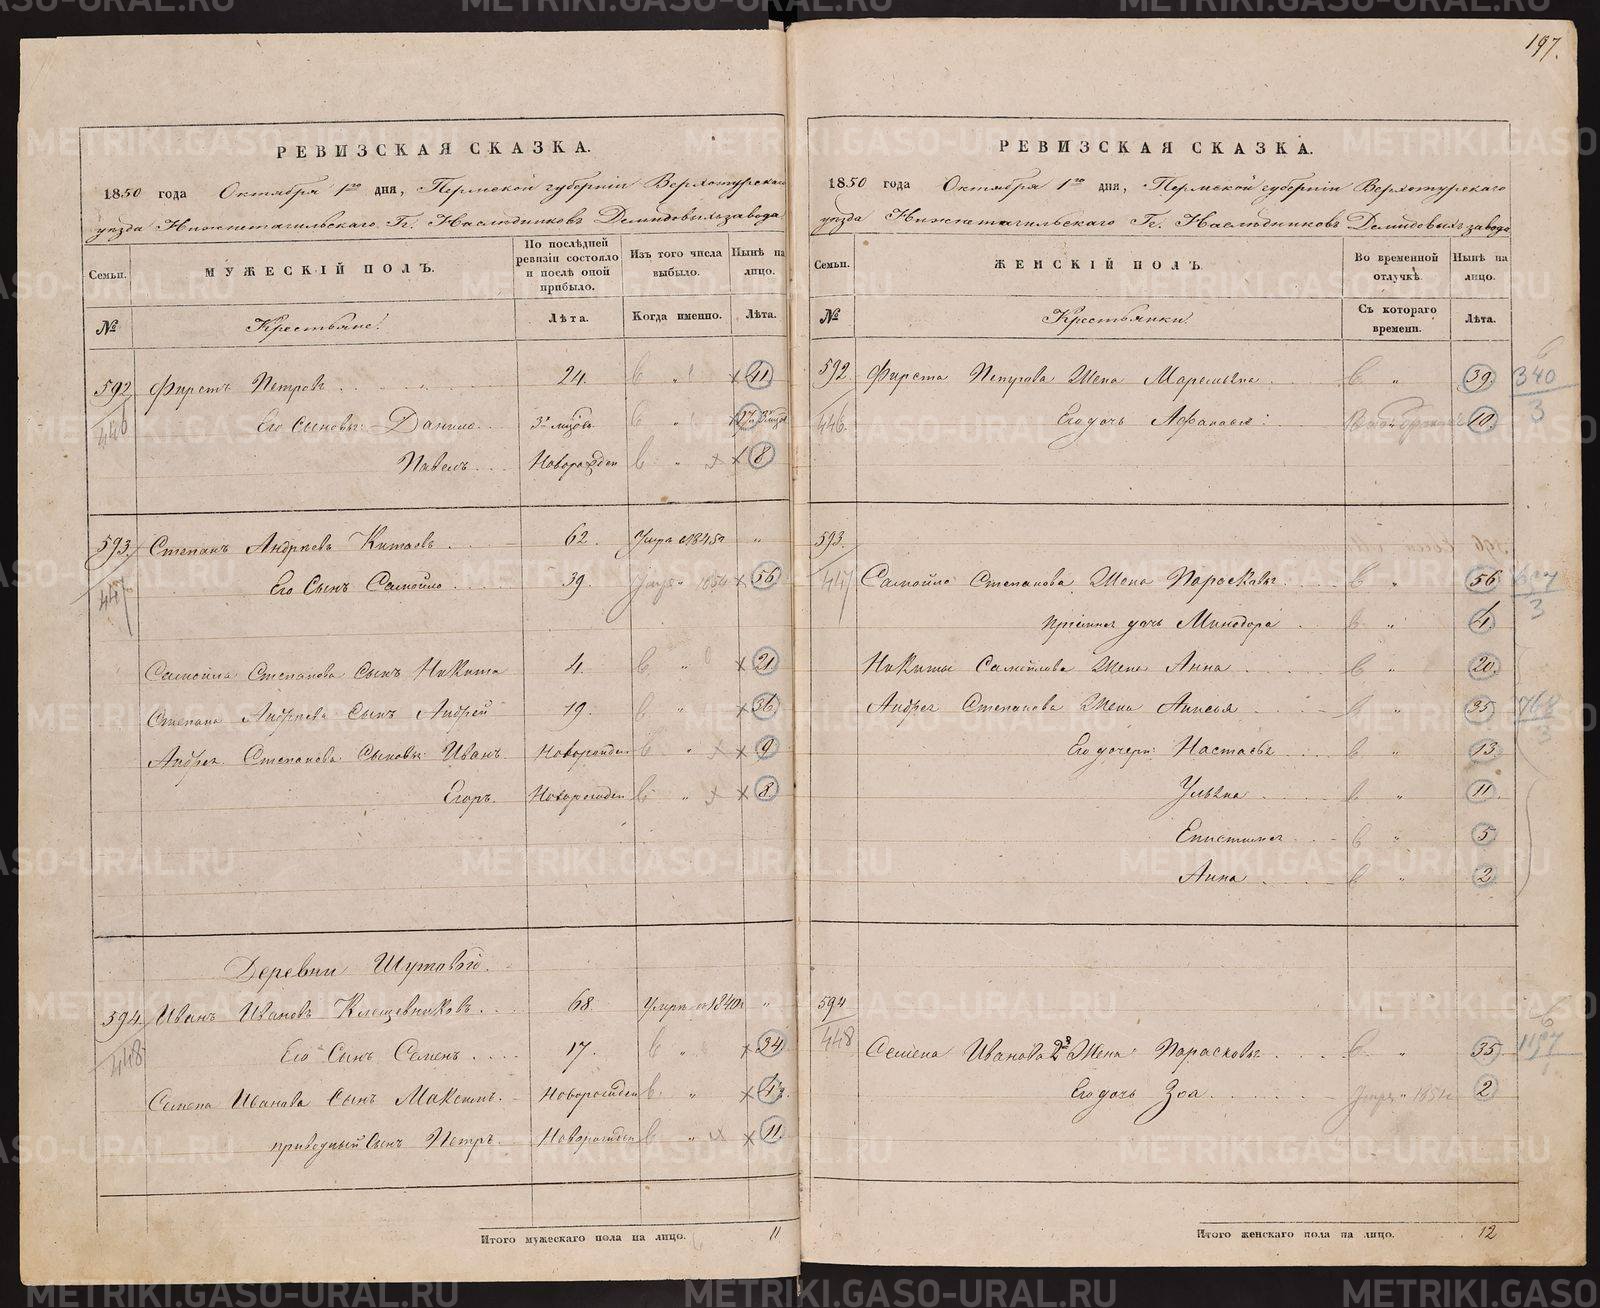 197.
РЕВИЗСКАЯ СКАЗКА.
1850 года Октября 1го дня, Пермской губернiи Верхотурскаго
уѣзда Нижнетагильскаго Гг. Наслѣдниковъ Демидовыхъ завода
Семьи. МУЖЕСКІЙ ПОЛЪ. По послѣдней ревизіи состояло и послѣ оной прибыло. Изъ того числа выбыло. Нынѣ на лицо.
№ Крестьяне. Лѣта. Когда именно. Лѣта.
592 Фирстъ Петровъ 24. 41
446 Его сыновья: Данило 3х мѣсяцъ 17
Павелъ Новорожден 8
593. Степанъ Андреевъ Китаевъ 62. Умре 1845г "
447 Его Сынъ Самойло 39. 1854 56
Самойла Степанова Сынъ Никита 4. 21
Степана Андреева Сынъ Андрей 19. 36
Андрея Степанова Сыновья: Иванъ Новорожден 9
Егоръ. Новорожден 8
Деревни Шутовой.
594. Иванъ Ивановъ Клещевниковъ 68. Умре 1840г "
448 Его Сынъ Семенъ 17. 34
Семена Иванова Сынъ Максимъ Новорожден
приводный Сынъ Петръ Новорожден 11
Итого мужескаго пола на лицо. 11
РЕВИЗСКАЯ СКАЗКА.
1850 года Октября 1го дня, Пермской губернiи Верхотурскаго
уѣзда Нижнетагильскаго Гг. Наслѣдниковъ Демидовыхъ завода
Семьи. ЖЕНСКІЙ ПОЛЪ. Во временной отлучкѣ. Нынѣ на лицо.
№ Крестьянки. Съ котораго времени. Лѣта.
592 Фирста Петрова Жена Маремьяна 39. 340
446 Его дочь Афанасья 10. 3
593.
447 Самойла Степанова Жена Парасковья 56
пріемная дочь Минодора 4 3
Никиты Самойлова Жена Анна 20.
Андрея Степанова Жена Анисья 35 768
Его дочери: Настасья 13
Ульяна 11
Епистимея 5
Анна 2
594
448 Семена Иванова 2я Жена Парасковья 35 1197
Его дочь Зоа 1851г 2
Итого женскаго пола на лицо. 12
METRIKI.GASO-URAL.RU